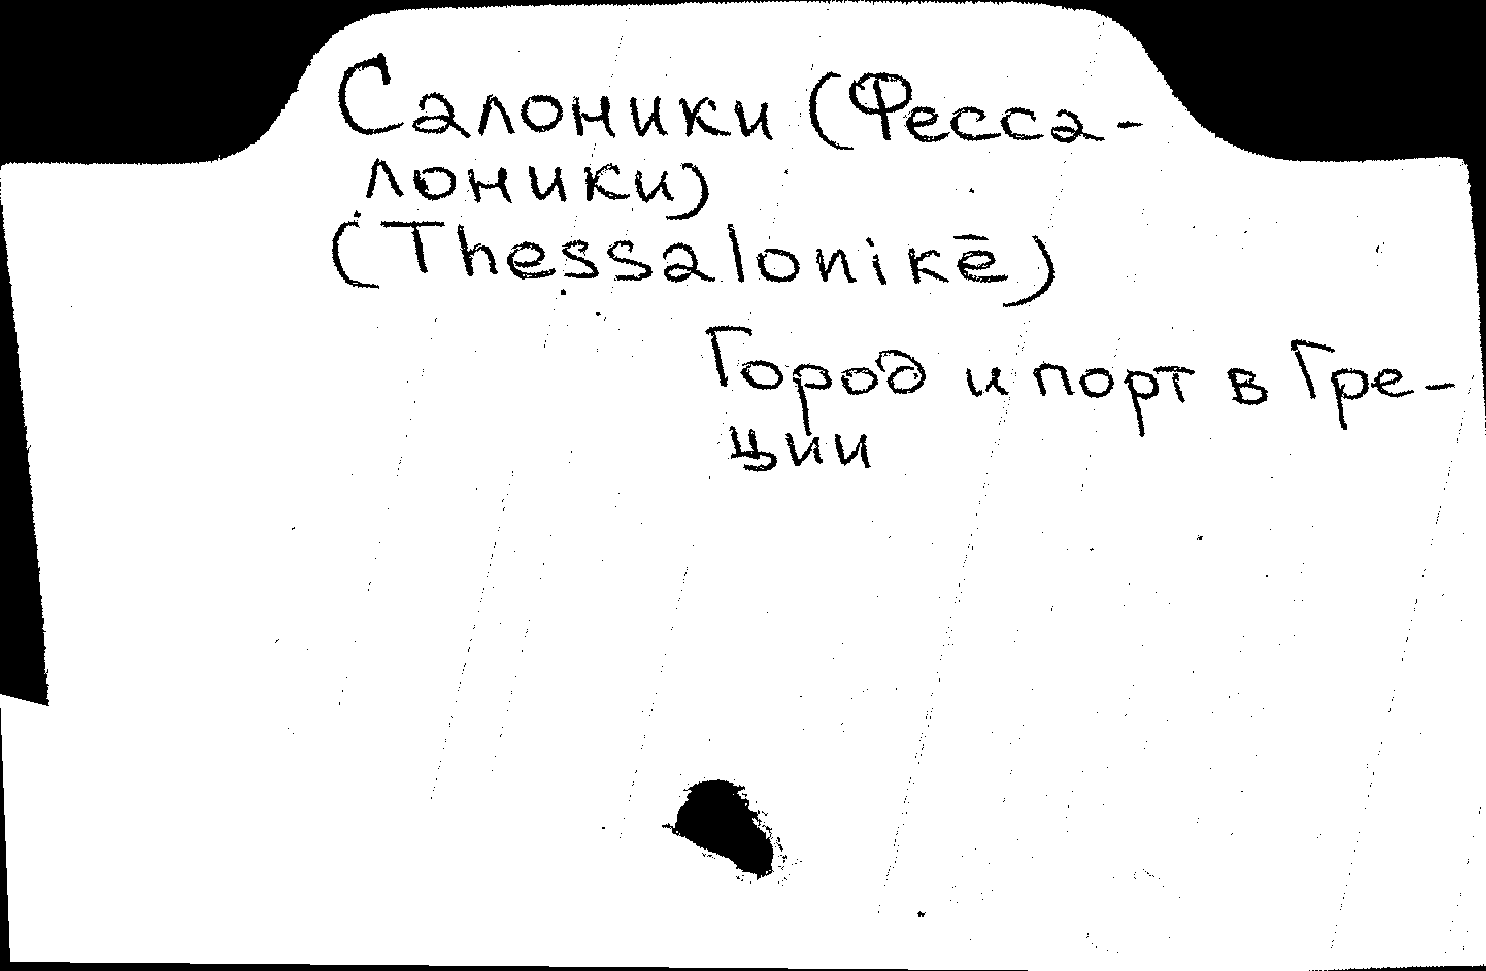 Салоники (Фесса-
лоники)
(Thessalonikē)
Город и порт в Гре-
ции